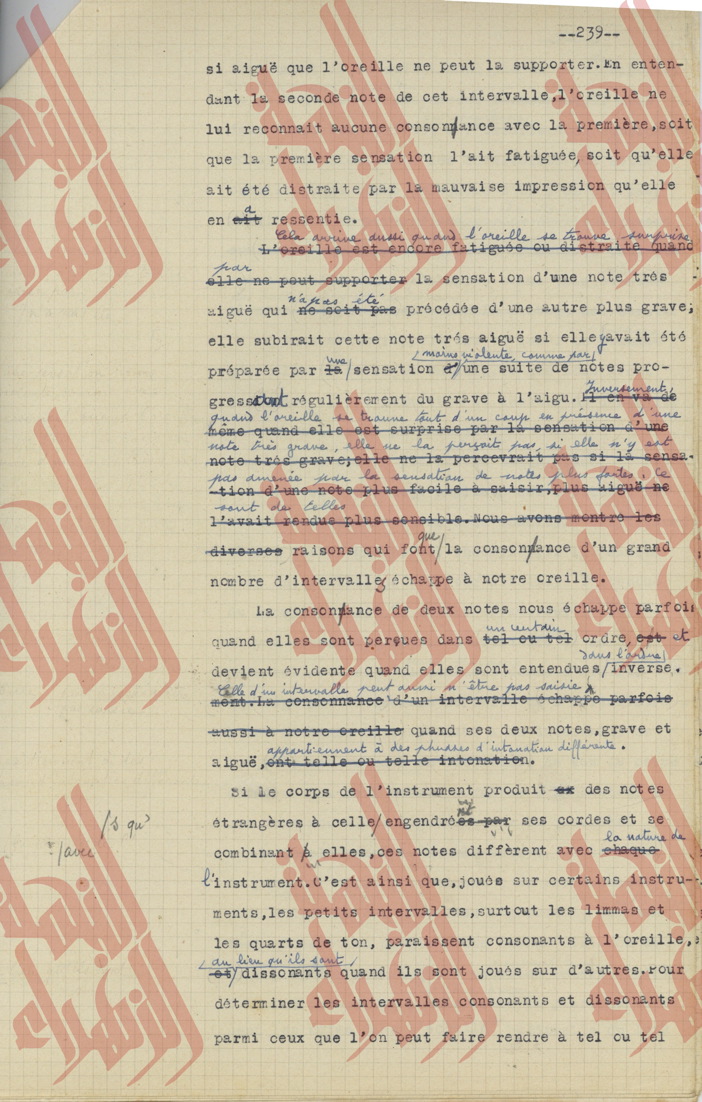 --239--
si aiguë que l'oreille ne peut la supporter.En enten-
dant la seconde note de cet intervalle,l'oreille ne
lui reconnait aucune consonnance avec la première,soit
que la première sensation l'ait fatiguée,soit qu'elle
ait été distraite par la mauvaise impression qu'elle
a
en ait ressentie.
Cela arrive aussi quand l'oreille se trouve surprise
L'oreille est encore fatiguée ou distraite quand
par
elle ne peut supporter la sensation d'une note très
n'a pas été
aiguë qui ne soit pas précédée d'une autre plus grave;
elle subirait cette note trés aiguë si elle avait été
une moins violente, comme par
préparée par la sensation d'une suite de notes pro-
Inversement,
gressant régulièrement du grave à l'aigu. Il en va de
quand l'oreille se trouve tout d'un coup en présence d'une
même quand elle est surprise par la sensation d'une
note très grave, elle ne la perçoit pas, si elle n'y est
note trés grave;elle ne la percevrait pas si la sensa-
pas amenée par la sensation de notes plus fortes. Ce
-tion d'une note plus facile à saisir,plus aiguë ne
sont de telles
l'avait rendue plus sensible.Nous avons montré les
que
diverses raisons qui font la consonnance d'un grand
nombre d'intervalles échappe à notre oreille.
La consonnance de deux notes nous échappe parfois
un certain
quand elles sont perçues dans tel ou tel ordre, est et
dans l'ordre
devient évidente quand elles sont entendues inverse.
Celle d'un intervalle peut aussi n'être pas saisie
ment.La consonnance d'un intervalle échappe parfois
aussi à notre oreille quand ses deux notes,grave et
appartiennent à des phrases d'intonation différente.
aiguë,ont telle ou telle intonation.
Si le corps de l'instrument produit des notes
étrangères à celle engendrées par ses cordes et se
/s qu'
la nature de
combinant à elles,ces notes diffèrent avec chaque
/avec
l'instrument.C'est ainsi que,joués sur certains instru-
ments,les petits intervalles,surtout les limmas et
les quarts de ton, paraissent consonants à l'oreille,
au lieu qu'ils sont
et dissonants quand ils sont joués sur d'autres.Pour
déterminer les intervalles consonants et dissonants
parmi ceux que l'on peut faire rendre à tel ou tel